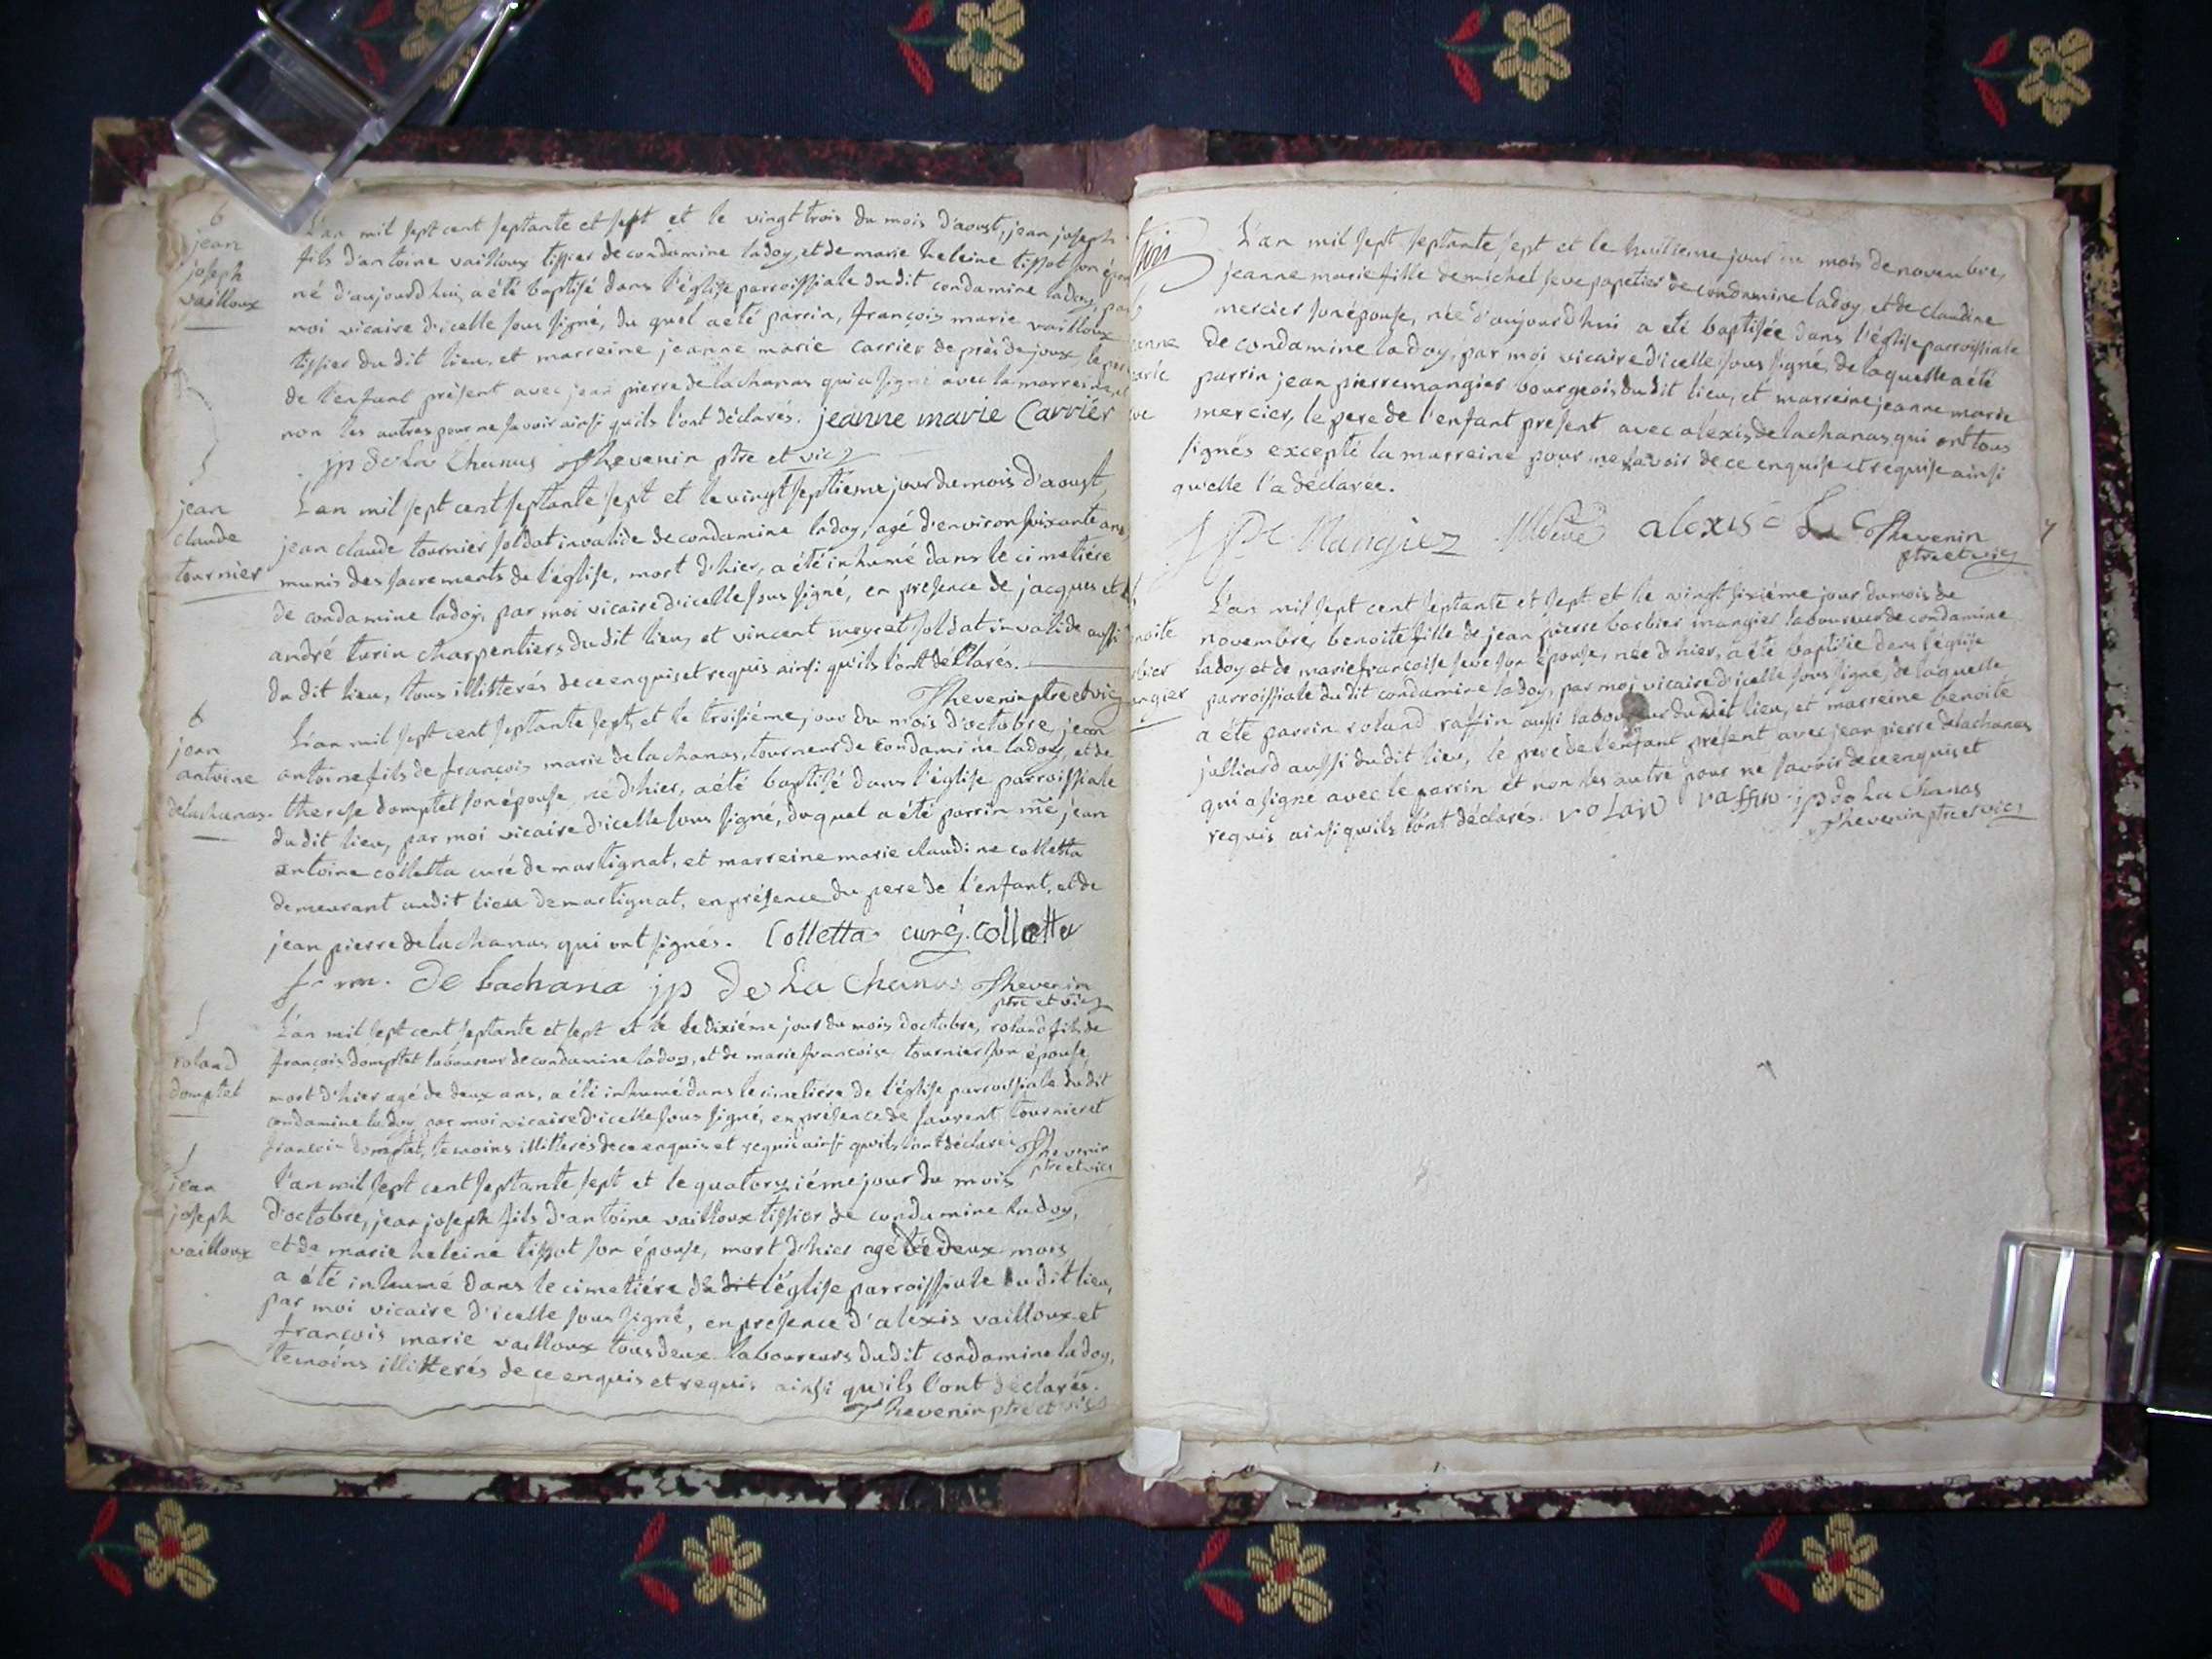 b
jean
joseph
vailloux
L'an mil sept cent septante et sept et le vingt trois du mois d'aoust, jean joseph
fils d'antoine vailloux tissier de condamine ladoy, et de marie heleine tissot son
né d'aujourd'hui, a été baptisé dans l'église parroissiale du dit condamine ladoy, par
moi vicaire d'icelle sous signé, du quel a été parrin, françois marie vailloux
tissier du dit lieu, et marreine jeanne marie carrier de près de joux, le per
de l'enfant présent avec jean pierre de lachanas qui a signé avec la marreine, et
non les autres pour ne savoir ainsi qu'ils l'ont déclarés. jeanne marie Carriér
jp de La Chanas Thevenin ptre et vic
S
jean
claude
tournier
L'an mil sept cent septante sept et le vingt septieme jour du mois d'aoust,
jean claude tournier soldat invalide de condamine ladoy, agé d'environ soixante ans
munis des sacrements de l'église, mort d'hier, a été inhumé dans le cimetiére
de condamine ladoy, par moi vicaire d'icelle sous signé, en presence de jacques et
andré turin charpentiers du dit lieu, et vincent meyret soldat invalide aussi
du dit lieu, tous illitterés de ce enquis et requis ainsi qu'ils l'ont déclarés.
Thevenin ptre et vic
b
jean
antoine
delachanas.
L'an mil sept cent septante sept, et le troisiéme jour du mois d'octobre jean
antoine fils de françois marie de lachanas, tourneur de condamine ladoy, et de
therese domptet son épouse, né d'hier, a été baptisé dans l'église parroissiale
du dit lieu, par moi vicaire d'icelle sous signé, duquel a été parrin mre jean
antoine colletta curé de martignat, et marreine marie claudine colletta
demeurant au dit lieu de martignat, en présence du pere de l'enfant, et de
jean pierre de lachanas qui ont signés. Colletta curé. colletta
fr m. de Lachana jp de La Chanas Thevenin
ptre et vic
S
roland
domptet
L'an mil sept cent septante et sept et le dixiéme jour du mois d'octobre, roland fils de
françois domptet laboureur de condamine ladoy, et de marie françoise tournier son épouse,
mort d'hier agé de deux ans, a été inhumé dans le cimetiere de l'église parroissiale du dit
condamine ladoy par moi vicaire d'icelle sous signé, en présence de laurent tournier et
françois domptet, temoins illitterés de ce enquis et requis ainsi qu'ils l'ont déclarés Thevenin
ptre et vic
S
jean
joseph
vailloux
L'an mil sept cent septante sept et le quatorziéme jour du mois
d'octobre, jean joseph fils d'antoine vailloux tissier de condamine ladoy,
et de marie heleine tissot son épouse, mort d'hier agé de deux mois
a été inhumé dans le cimetiére de l'église parroissiale du dit lieu,
par moi vicaire d'icelle sous signé, en presence d'aléxis vailloux et
françois marie vailloux tous deux laboureurs du dit condamine ladoy,
temoins illitterés de ce enquis et requis ainsi qu'ils l'ont déclarés.
Thevenin ptre et vic
L'an mil sept septante sept et le huitieme jour du mois de novembre,
jeanne marie fille de michel seve papetier de condamine ladoy et de claudine
mercier son épouse, née d'aujourd'hui a été baptisée dans l'église parroissiale
de condamine ladoy, par moi vicaire d'icelle sous signé, de laquelle a été
parrin jean pierre mangier bourgeois du dit lieu, et marreine jeanne marie
mercier, le pere de l'enfant present avec alexis de lachanas qui ont tous
signés excepté la marreine pour ne savoir de ce enquise et requise ainsi
qu'elle l'a déclarée.
Mangier MSève alexis Thevenin
ptre et vic
L'an mil sept cent septante et sept et le vingt sixiéme jour du mois de
novembre, benoite fille de jean pierre barbier mangier laboureur de condamine
ladoy et de marie françoise seve son épouse, née d'hier, a été baptisée dans l'église
parroissiale du dit condamine ladoy, par moi vicaire d'icelle sous signé, de laquelle
a été parrin roland raffin aussi laboureur du dit lieu, et marreine benoite
julliard aussi du dit lieu, le pere de l'enfant présent avec jean pierre delachanas
qui a signé avec le parrin et non les autre pour ne savoir de ce enquis et
requis ainsi qu'ils l'ont déclarés. roLand raffin jp de La Chanas
Thevenin ptre et vic